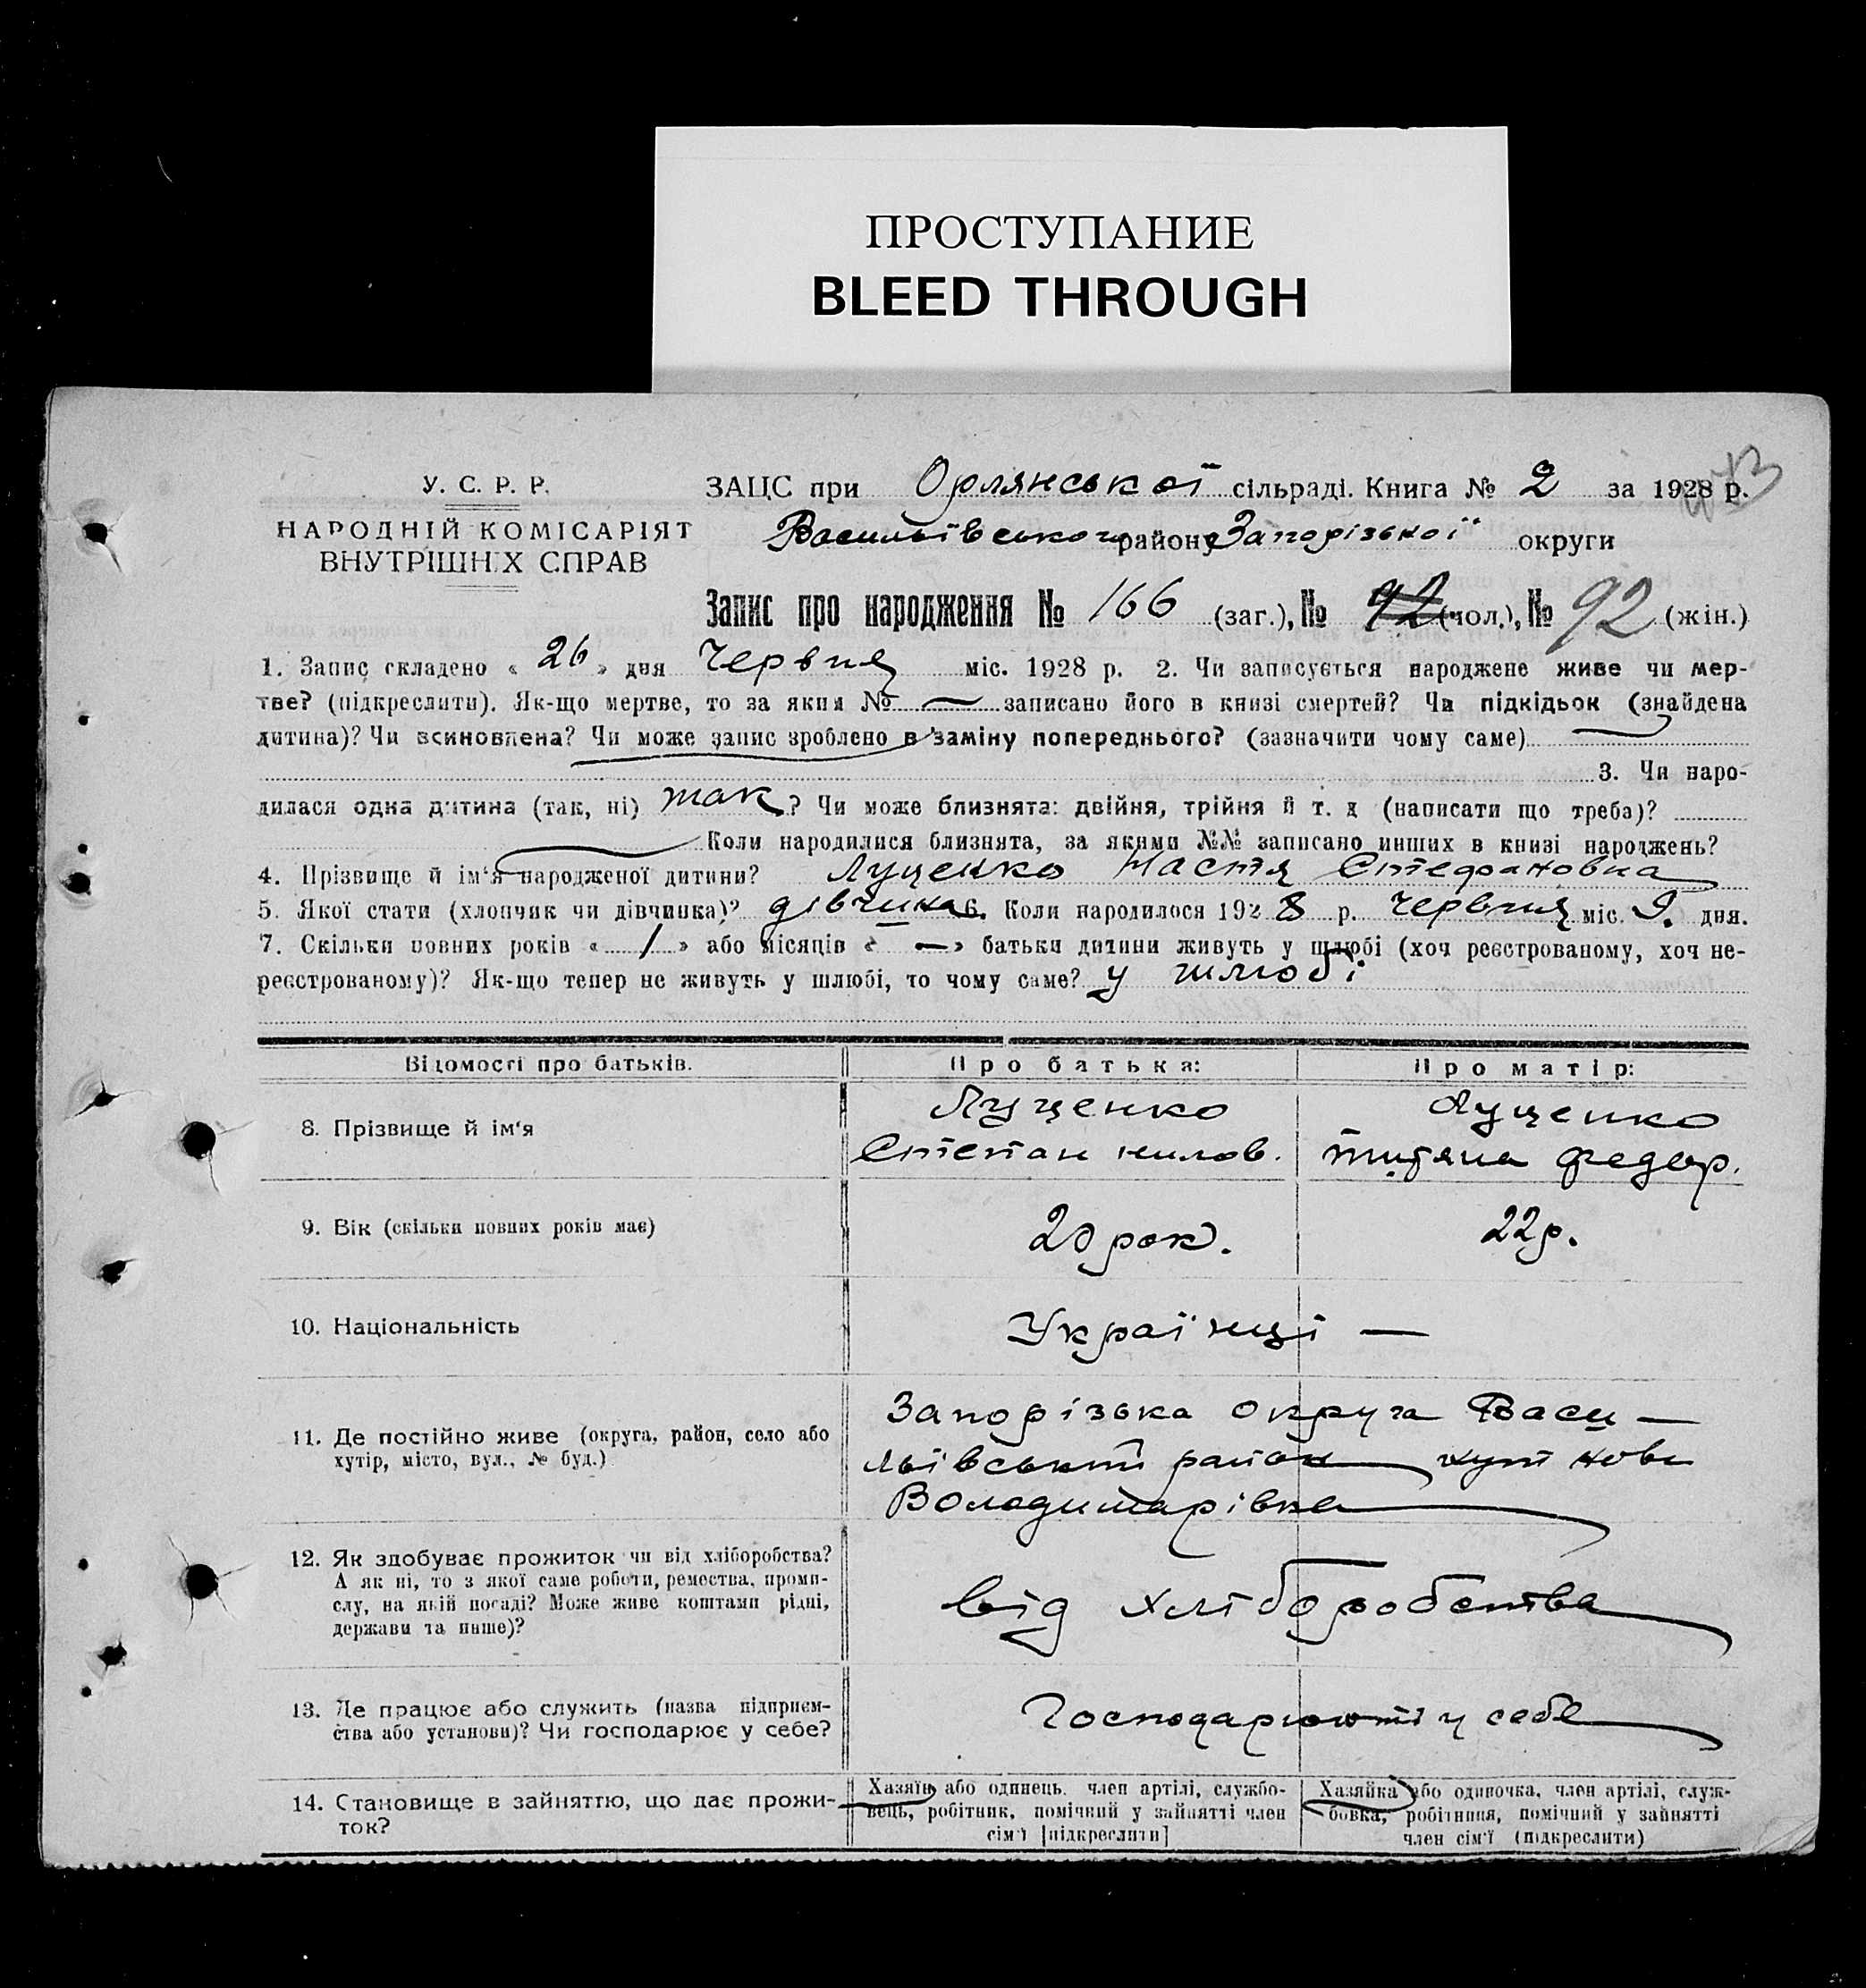 ПРОСТУПАНИЕ
BLEED THROUGH
У. С. Р. Р.
НАРОДНІЙ КОМІСАРІЯТ
ВНУТРІШНІХ СПРАВ
ЗАЦС при Орлянської сільраді. Книга № 2 за 1928 р.
Васильівського району Запорізької округи
Запис про народження № 166 (заг.), № 92 (чол.), № 92 (жін.)
1. Запис складено « 26 » дня Червня міс. 1928 р. 2. Чи записується народжене живе чи мер-
тве? (підкреслити). Як-що мертве, то за яким № — записано його в книзі смертей? Чи підкідьок (знайдена
дитина)? Чи всиновлена? Чи може запис зроблено в заміну попереднього? (зазначити чому саме)
3. Чи наро-
дилася одна дитина (так, ні) так? Чи може близнята: двійня, трійня й т. д (написати що треба)?
Коли народилися близнята, за якими №№ записано инших в книзі народжень?
4. Прізвище й ім'я народженої дитини? Луценко Настя Стефановна
5. Якої стати (хлопчик чи дівчинка)? дівчина 6. Коли народилося 1928 р. червня міс. 9. дня.
7. Скільки повних років « 1 » або місяців « — » батьки дитини живуть у шлюбі (хоч реєстрованому, хоч не-
реєстрованому)? Як-що тепер не живуть у шлюбі, то чому саме? у шлюбі
Відомості про батьків. Про батька: Про матір:
8. Прізвище й ім'я
Луценко
Степан нилов.
Луценко
федор.
9. Вік (скільки повних років має) 20 рок. 22 р.
10. Національність Українці —
11. Де постійно живе (округа, район, село або
хутір, місто, вул., № буд.)
Запорізька округа Васи—
льівський район хут Нови
Володимарівка
12. Як здобуває прожиток чи від хліборобства?
А як ні, то з якої саме роботи, ремества, проми-
слу, на якій посаді? Може живе коштами рідні,
держави та инше)?
від хліборобства
13. Де працює або служить (назва підприєм-
ства або установи)? Чи господарює у себе?
Господарюють у себе
14. Становище в зайняттю, що дає прожи-
ток?
Хазяїн або одинець, член артілі, службо-
вець, робітник, помічний у зайнятті член
сім'ї [підкреслити]
Хазяйка або одиночка, член артілі, служ-
бовка, робітниця, помічний у зайнятті
член сім'ї (підкреслити)